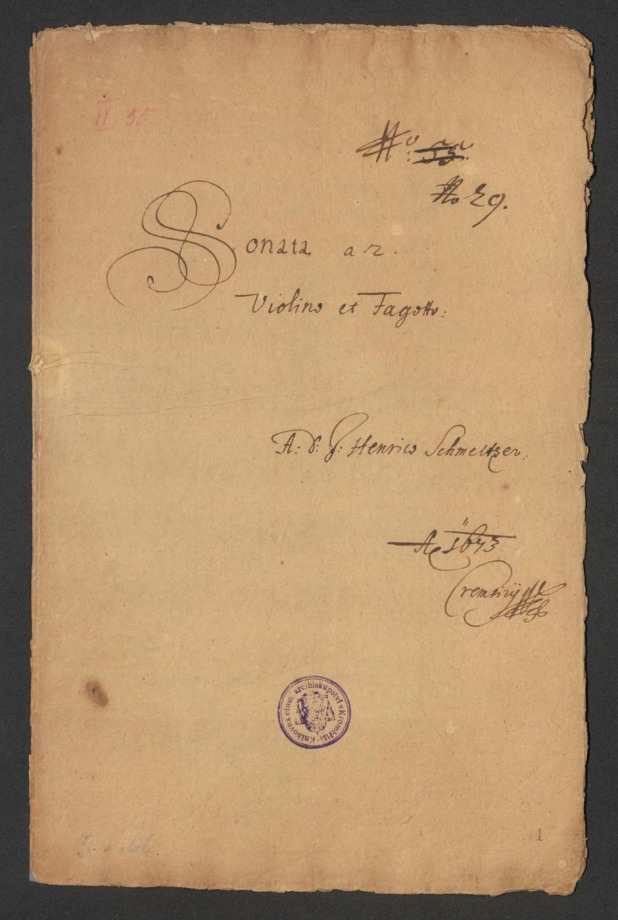 IV. 55
No: 55.
No 29.
Sonata a 2.
Violino et Fagotto:
A: D: J: Henrico Schmeltzer:
Aõ 1673
Cremsirij
Knihovna elom. arcibiskupství v Kroměříži
1